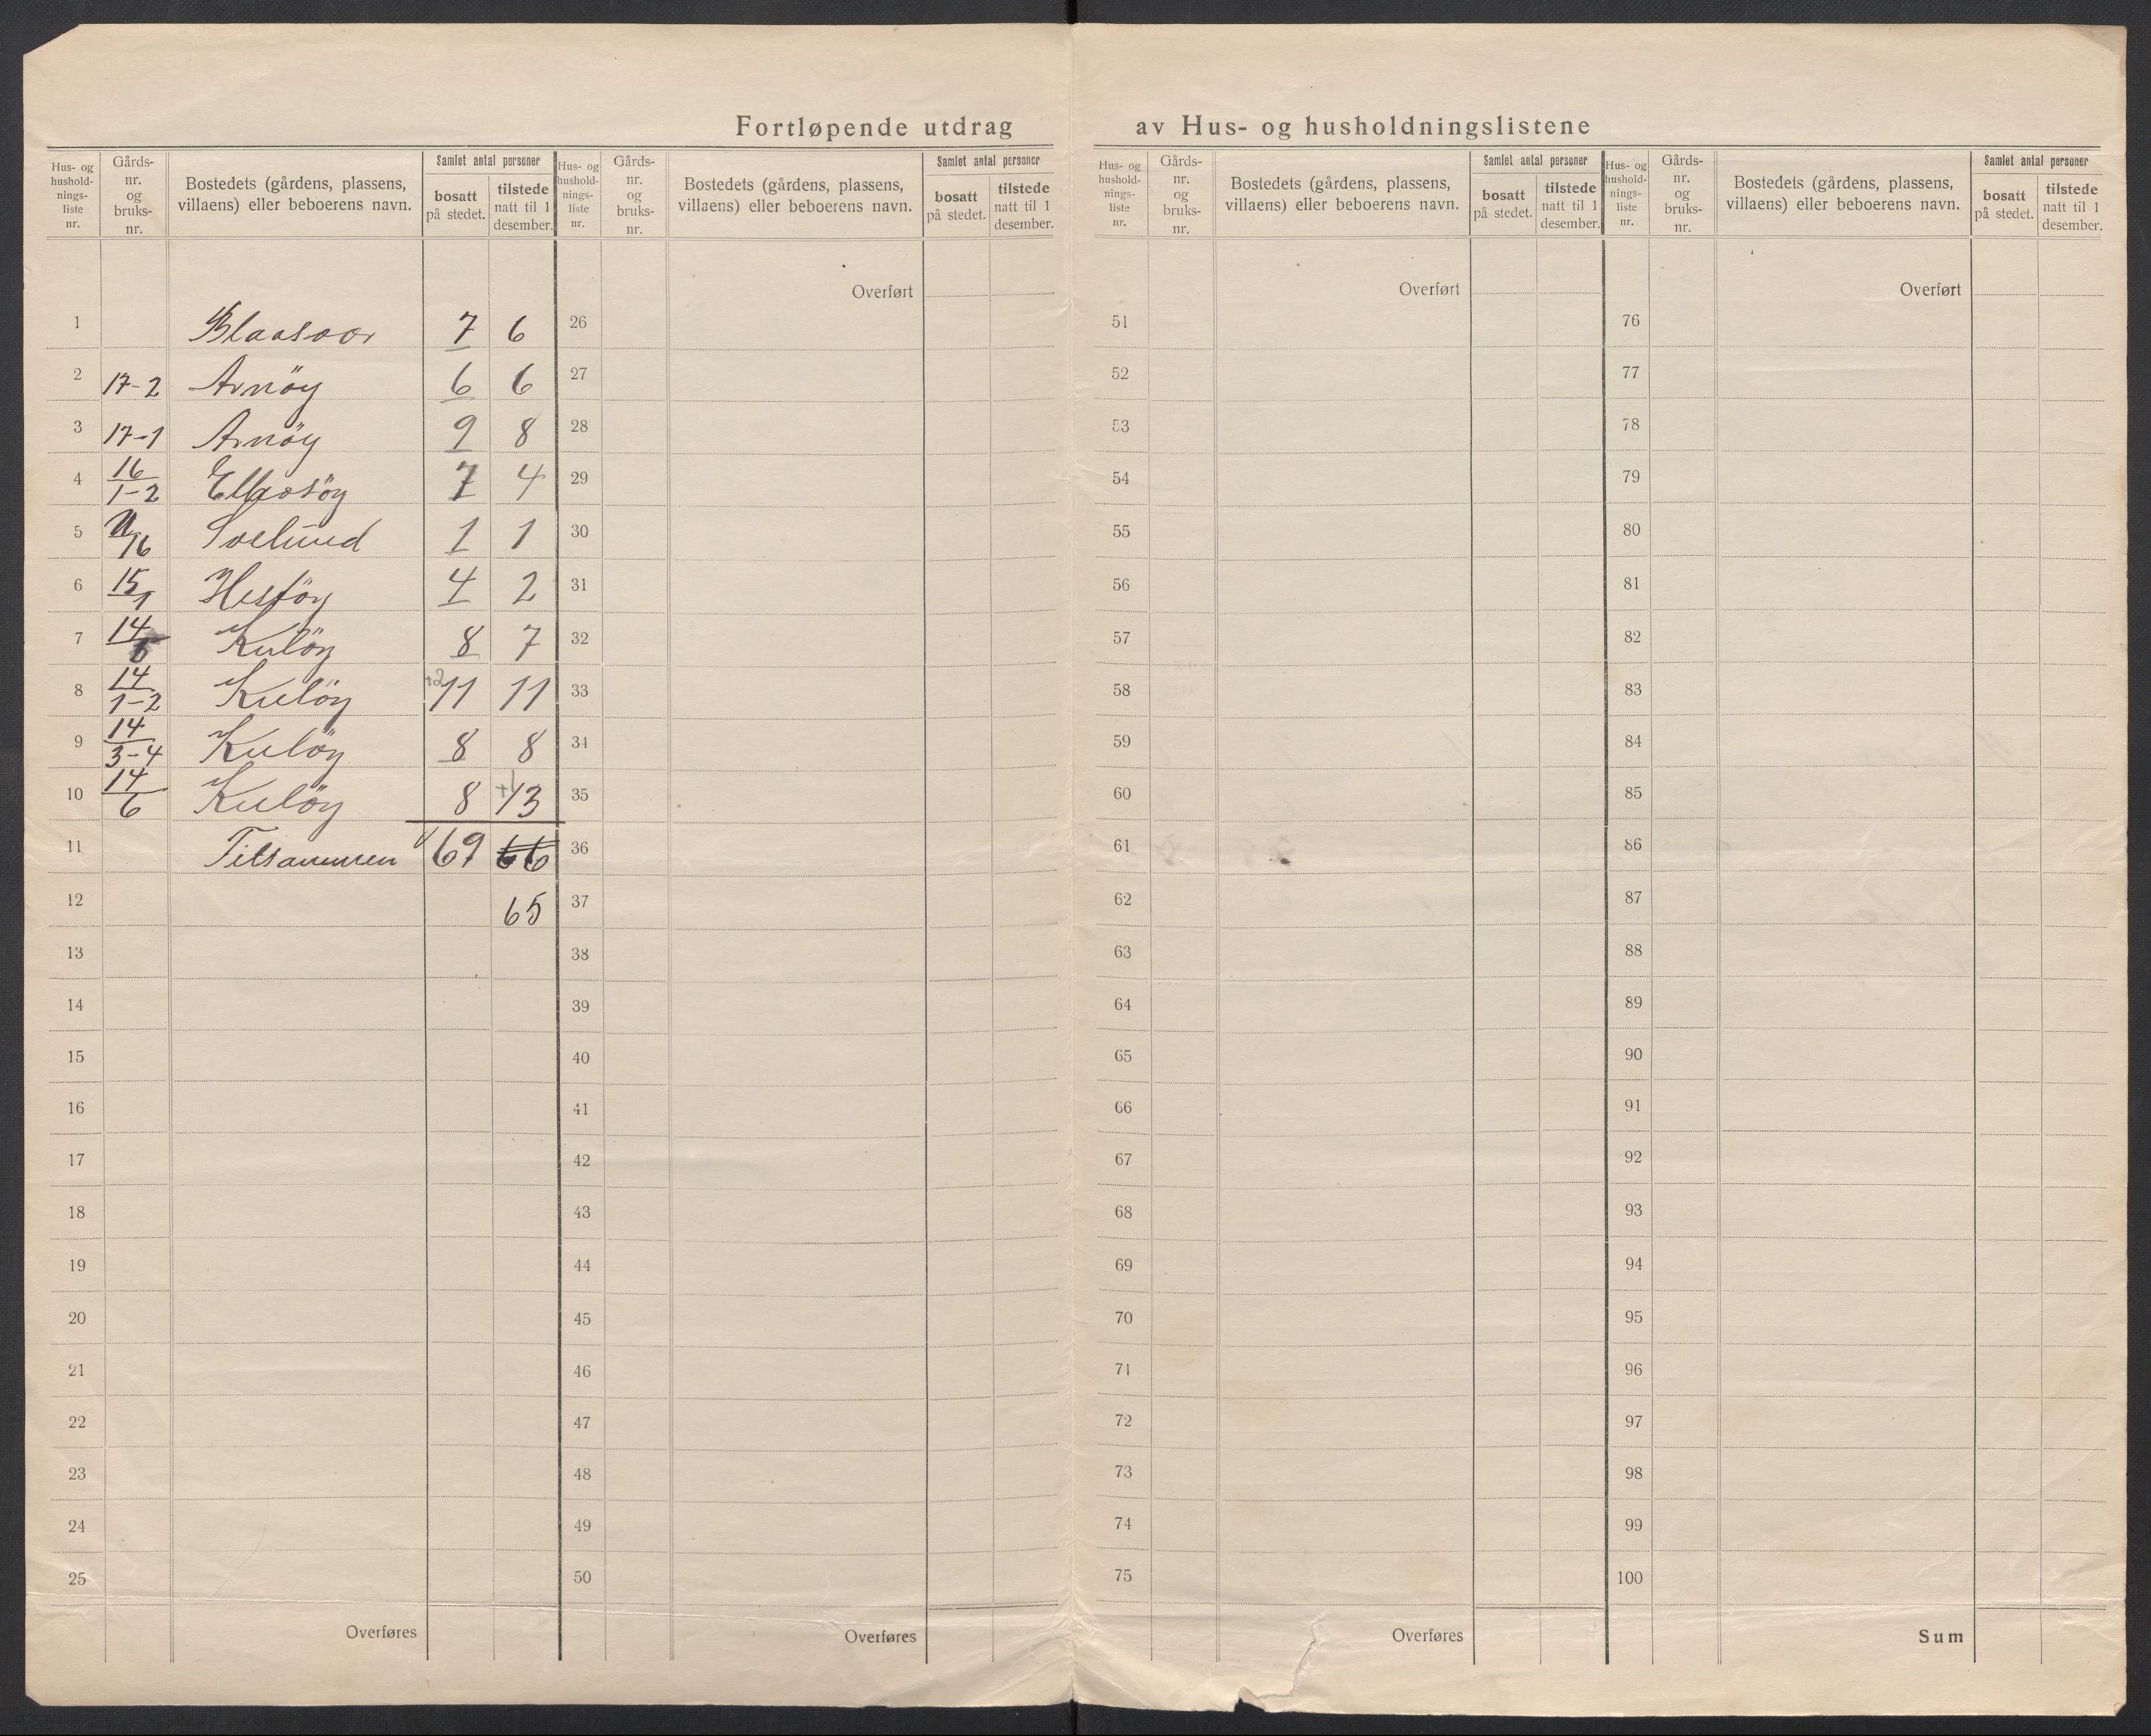 Fortløpende utdrag av Hus- og husholdningslistene
Hus- og hushold-nings-liste nr.
Gårds-nr. og bruks-nr.
Bostedets (gårdens, plassens, villaens) eller beboerens navn.
Samlet antal personer
bosatt på stedet.
tilstede natt til 1 desember.
Hus- og hushold-nings-liste nr.
Gårds-nr. og bruks-nr.
Bostedets (gårdens, plassens, villaens) eller beboerens navn.
Samlet antal personer
bosatt på stedet.
tilstede natt til 1 desember.
Hus- og hushold-nings-liste nr.
Gårds-nr. og bruks-nr.
Bostedets (gårdens, plassens, villaens) eller beboerens navn.
Samlet antal personer
bosatt på stedet.
tilstede natt til 1 desember.
Hus- og hushold-nings-liste nr.
Gårds-nr. og bruks-nr.
Bostedets (gårdens, plassens, villaens) eller beboerens navn.
Samlet antal personer
bosatt på stedet.
tilstede natt til 1 desember.
1 Blaasvær 7 6
2 17-2 Arnöy 6 6
3 17-1 Arnöy 9 8
4 16/1-2 Ellingsöy 7 4
5 Soelund 1 1
6 15/1 Hestöy 4 2
7 14/ Kulöy 8 7
8 14/1-2 Kulöy +2 11 11
9 14/3-4 Kulöy 8 8
10 14/6 Kulöy 8 +1 13
11 Tilsammen 69 66
12 65
13
14
15
16
17
18
19
20
21
22
23
24
25
Overføres
Overført
26
27
28
29
30
31
32
33
34
35
36
37
38
39
40
41
42
43
44
45
46
47
48
49
50
Overføres
Overført
51
52
53
54
55
56
57
58
59
60
61
62
63
64
65
66
67
68
69
70
71
72
73
74
75
Overføres
Overført
76
77
78
79
80
81
82
83
84
85
86
87
88
89
90
91
92
93
94
95
96
97
98
99
100
Sum